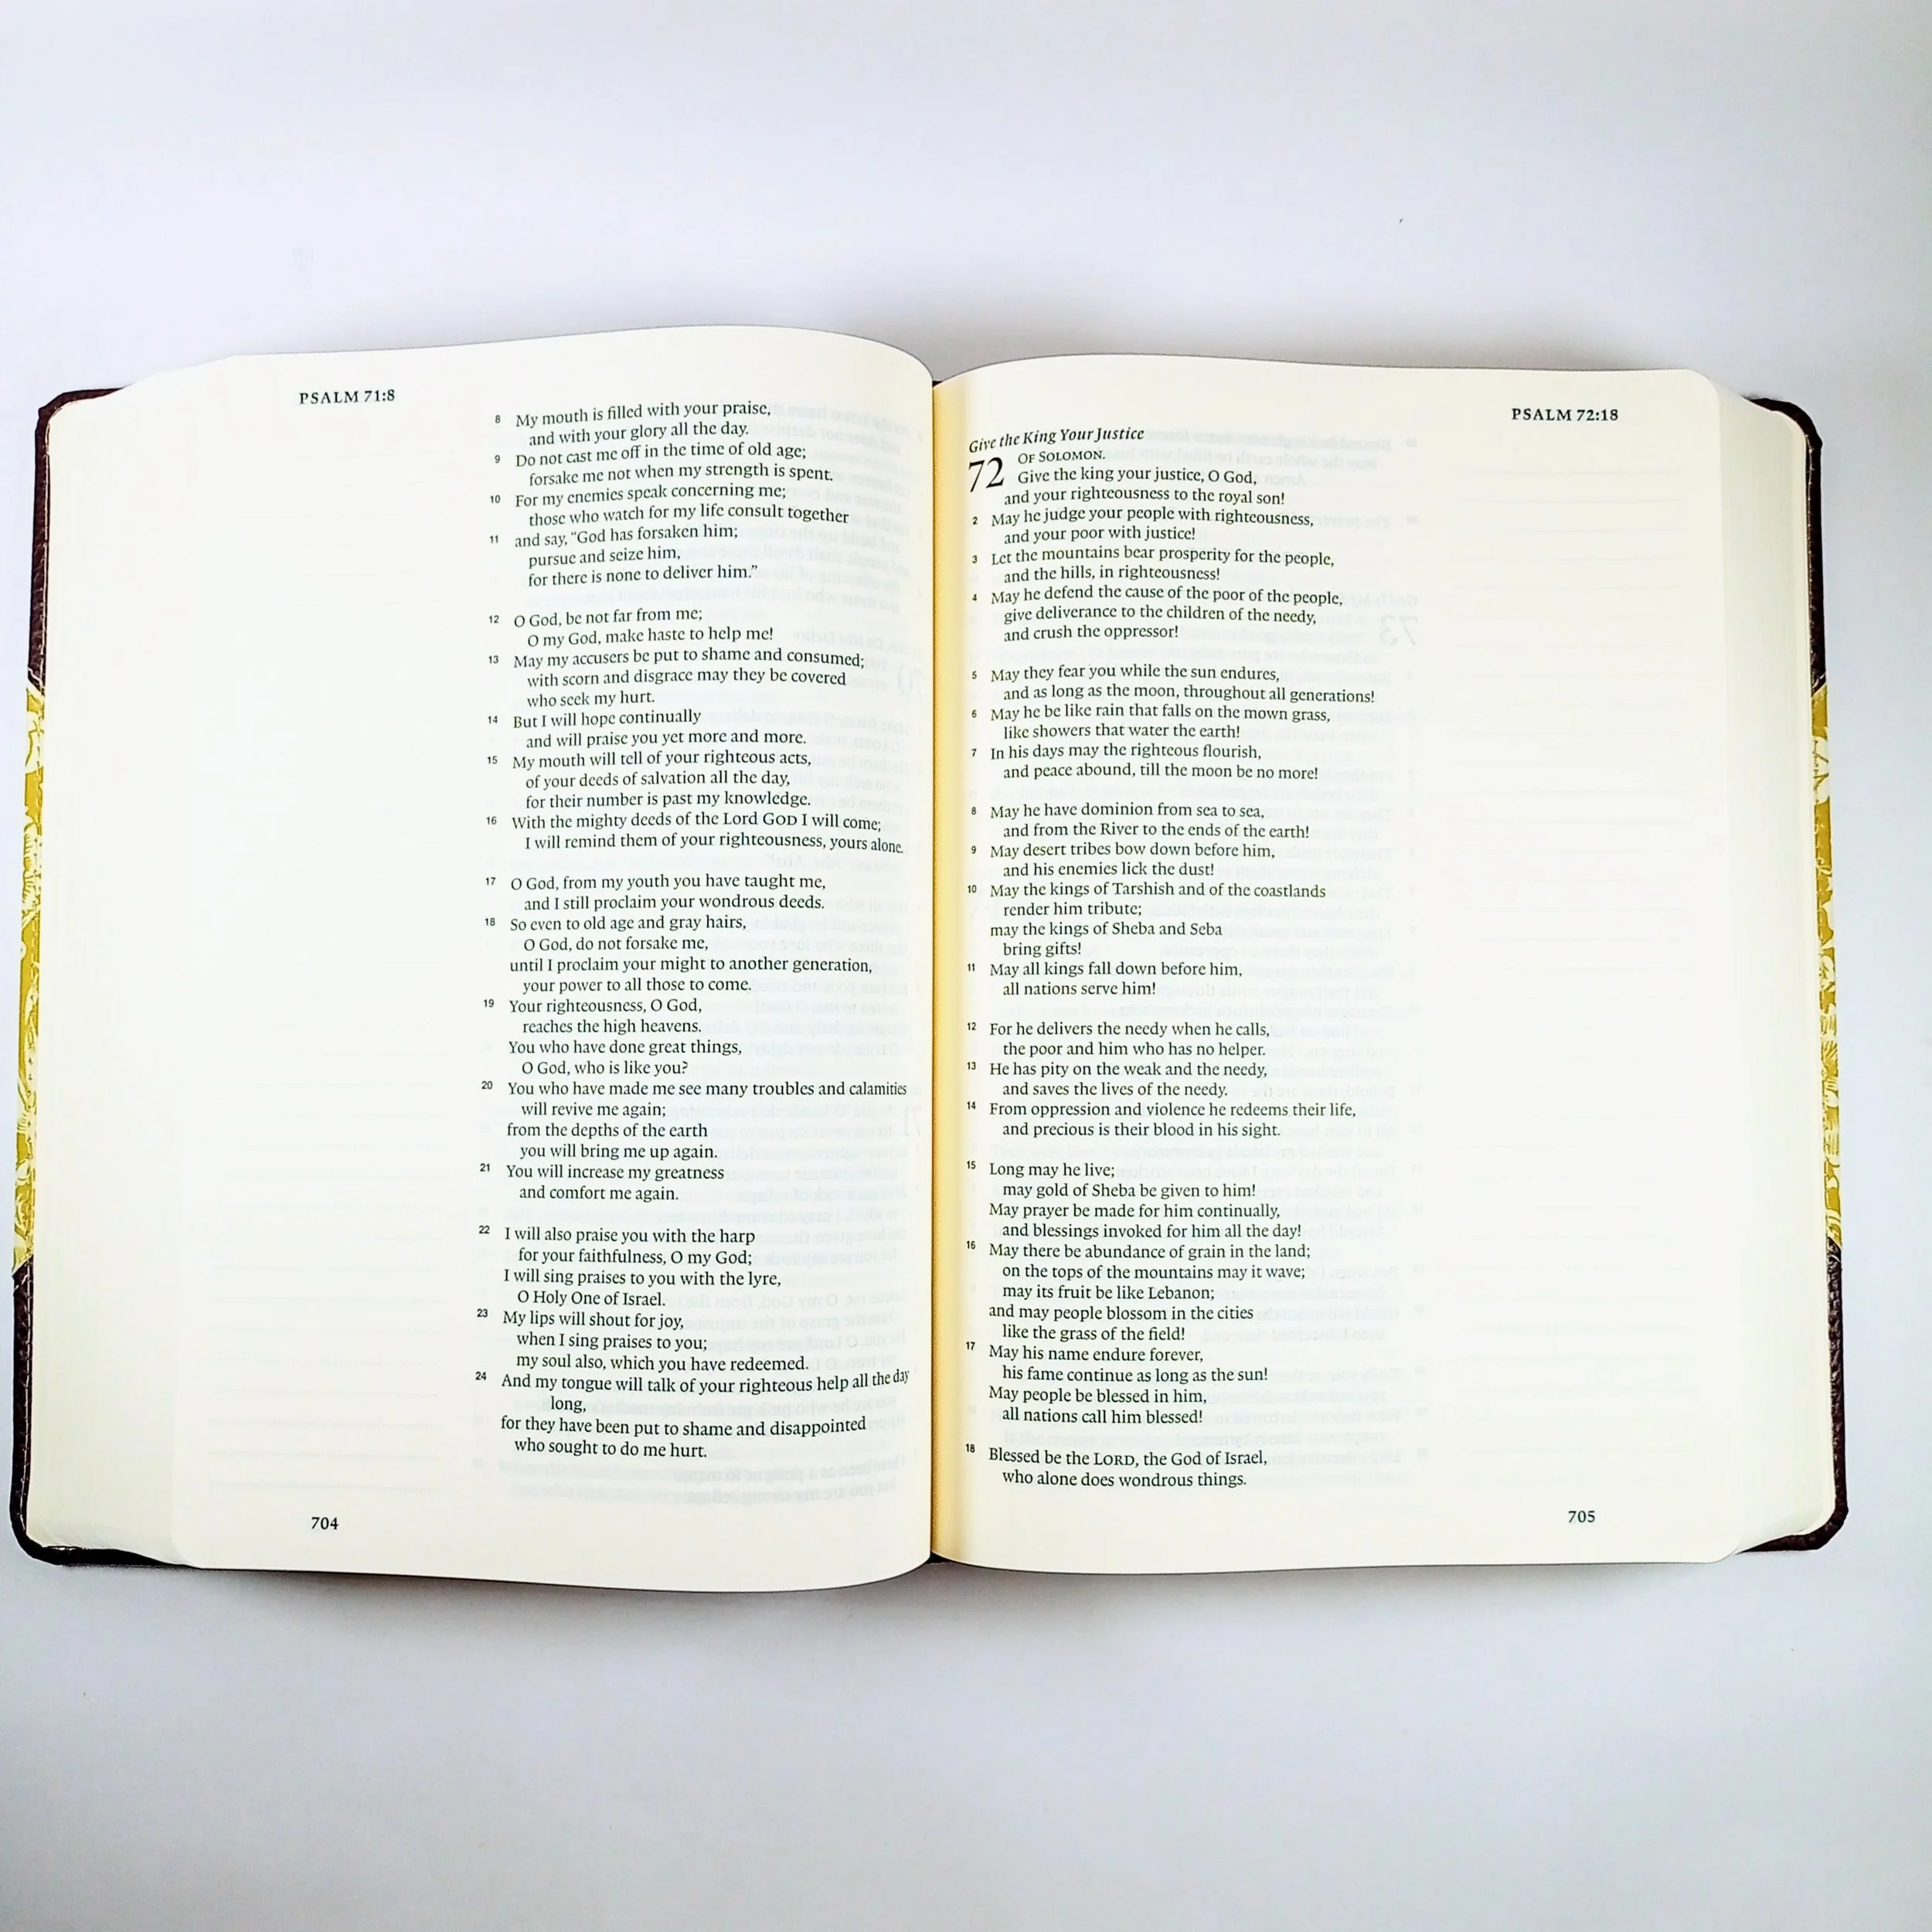 PSALM 71:8
8 My mouth is filled with your praise,
and with your glory all the day.
9 Do not cast me off in the time of old age;
forsake me not when my strength is spent.
10 For my enemies speak concerning me;
those who watch for my life consult together
11 and say, “God has forsaken him;
pursue and seize him,
for there is none to deliver him.”
12 O God, be not far from me;
O my God, make haste to help me!
13 May my accusers be put to shame and consumed;
with scorn and disgrace may they be covered
who seek my hurt.
14 But I will hope continually
and will praise you yet more and more.
15 My mouth will tell of your righteous acts,
of your deeds of salvation all the day,
for their number is past my knowledge.
16 With the mighty deeds of the Lord GOD I will come;
I will remind them of your righteousness, yours alone.
17 O God, from my youth you have taught me,
and I still proclaim your wondrous deeds.
18 So even to old age and gray hairs,
O God, do not forsake me,
until I proclaim your might to another generation,
your power to all those to come.
19 Your righteousness, O God,
reaches the high heavens.
You who have done great things,
O God, who is like you?
20 You who have made me see many troubles and calamities
will revive me again;
from the depths of the earth
you will bring me up again.
21 You will increase my greatness
and comfort me again.
22 I will also praise you with the harp
for your faithfulness, O my God;
I will sing praises to you with the lyre,
O Holy One of Israel.
23 My lips will shout for joy,
when I sing praises to you;
my soul also, which you have redeemed.
24 And my tongue will talk of your righteous help all the day
long,
for they have been put to shame and disappointed
who sought to do me hurt.
704
PSALM 72:18
Give the King Your Justice
72 OF SOLOMON.
Give the king your justice, O God,
and your righteousness to the royal son!
2 May he judge your people with righteousness,
and your poor with justice!
3 Let the mountains bear prosperity for the people,
and the hills, in righteousness!
4 May he defend the cause of the poor of the people,
give deliverance to the children of the needy,
and crush the oppressor!
5 May they fear you while the sun endures,
and as long as the moon, throughout all generations!
6 May he be like rain that falls on the mown grass,
like showers that water the earth!
7 In his days may the righteous flourish,
and peace abound, till the moon be no more!
8 May he have dominion from sea to sea,
and from the River to the ends of the earth!
9 May desert tribes bow down before him,
and his enemies lick the dust!
10 May the kings of Tarshish and of the coastlands
render him tribute;
may the kings of Sheba and Seba
bring gifts!
11 May all kings fall down before him,
all nations serve him!
12 For he delivers the needy when he calls,
the poor and him who has no helper.
13 He has pity on the weak and the needy,
and saves the lives of the needy.
14 From oppression and violence he redeems their life,
and precious is their blood in his sight.
15 Long may he live;
may gold of Sheba be given to him!
May prayer be made for him continually,
and blessings invoked for him all the day!
16 May there be abundance of grain in the land;
on the tops of the mountains may it wave;
may its fruit be like Lebanon;
and may people blossom in the cities
like the grass of the field!
17 May his name endure forever,
his fame continue as long as the sun!
May people be blessed in him,
all nations call him blessed!
18 Blessed be the LORD, the God of Israel,
who alone does wondrous things.
705